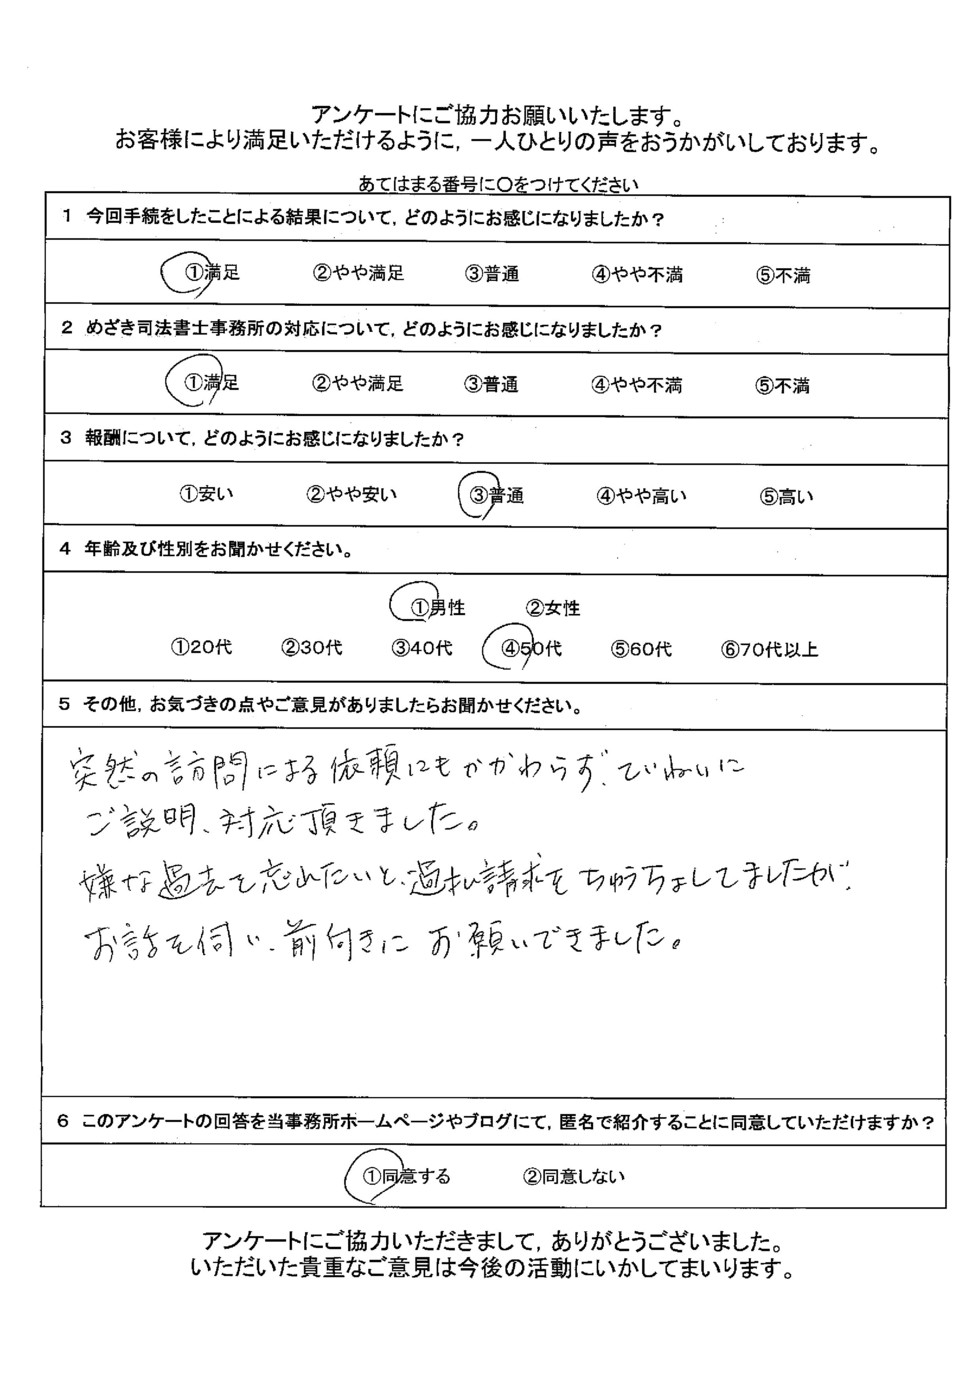 アンケートにご協力お願いいたします。
お客様により満足いただけるように，一人ひとりの声をおうかがいしております。
あてはまる番号に〇をつけてください
1 今回手続をしたことによる結果について，どのようにお感じになりましたか？
①満足 ②やや満足 ③普通 ④やや不満 ⑤不満
2 めざき司法書士事務所の対応について，どのようにお感じになりましたか？
①満足 ②やや満足 ③普通 ④やや不満 ⑤不満
3 報酬について，どのようにお感じになりましたか？
①安い ②やや安い ③普通 ④やや高い ⑤高い
4 年齢及び性別をお聞かせください。
①男性 ②女性
①20代 ②30代 ③40代 ④50代 ⑤60代 ⑥70代以上
5 その他，お気づきの点やご意見がありましたらお聞かせください。
突然の訪問による依頼にもかかわらず、ていねいに
ご説明、対応頂きました。
嫌な過去を忘れたいと、過払請求をちゅうちょしてましたが、
お話を伺い、前向きにお願いできました。
6 このアンケートの回答を当事務所ホームページやブログにて，匿名で紹介することに同意していただけますか？
①同意する ②同意しない
アンケートにご協力いただきまして，ありがとうございました。
いただいた貴重なご意見は今後の活動にいかしてまいります。